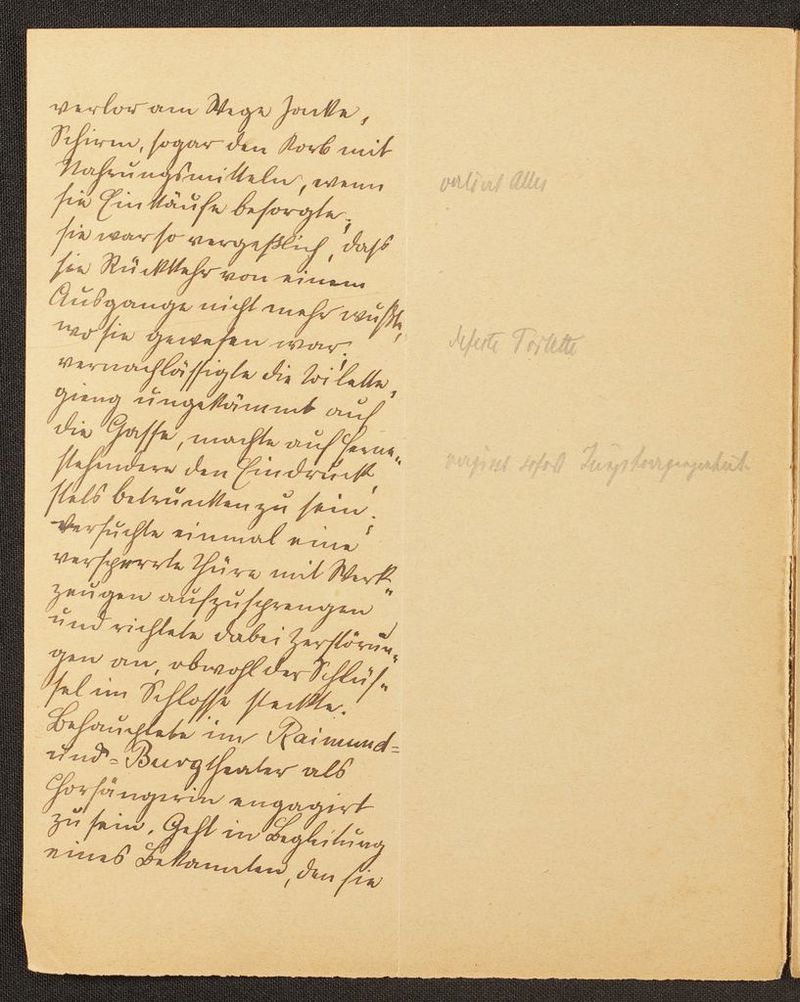 verlor am Wege Jacke,
Schirm, sogar den Korb mit
Nahrungsmitteln, wenn
sie Einkäufe besorgte;
sie war so vergeßlich, daß
sie Rückkehr von einem
Ausgange nicht mehr wußte,
wo sie gewesen war;
vernachlässigte die Toilette,
gieng ungekämmt auf
die Gasse, machte auf Ferne-
stehendere den Eindruck,
stets betrunken zu sein;
versuchte einmal eine
versperrte Thüre mit Werk-
zeugen aufzusprengen
und richtete dabei Zerstörun-
gen an, obwohl der Schlüs-
sel im Schlosse steckte.
Behauptete im Raimund-
und-Burgtheater als
Chorsängerin engagirt
zu sein. Geht in Begleitung
eines Bekannten, den sie
verliert Alles
defecte Toilette